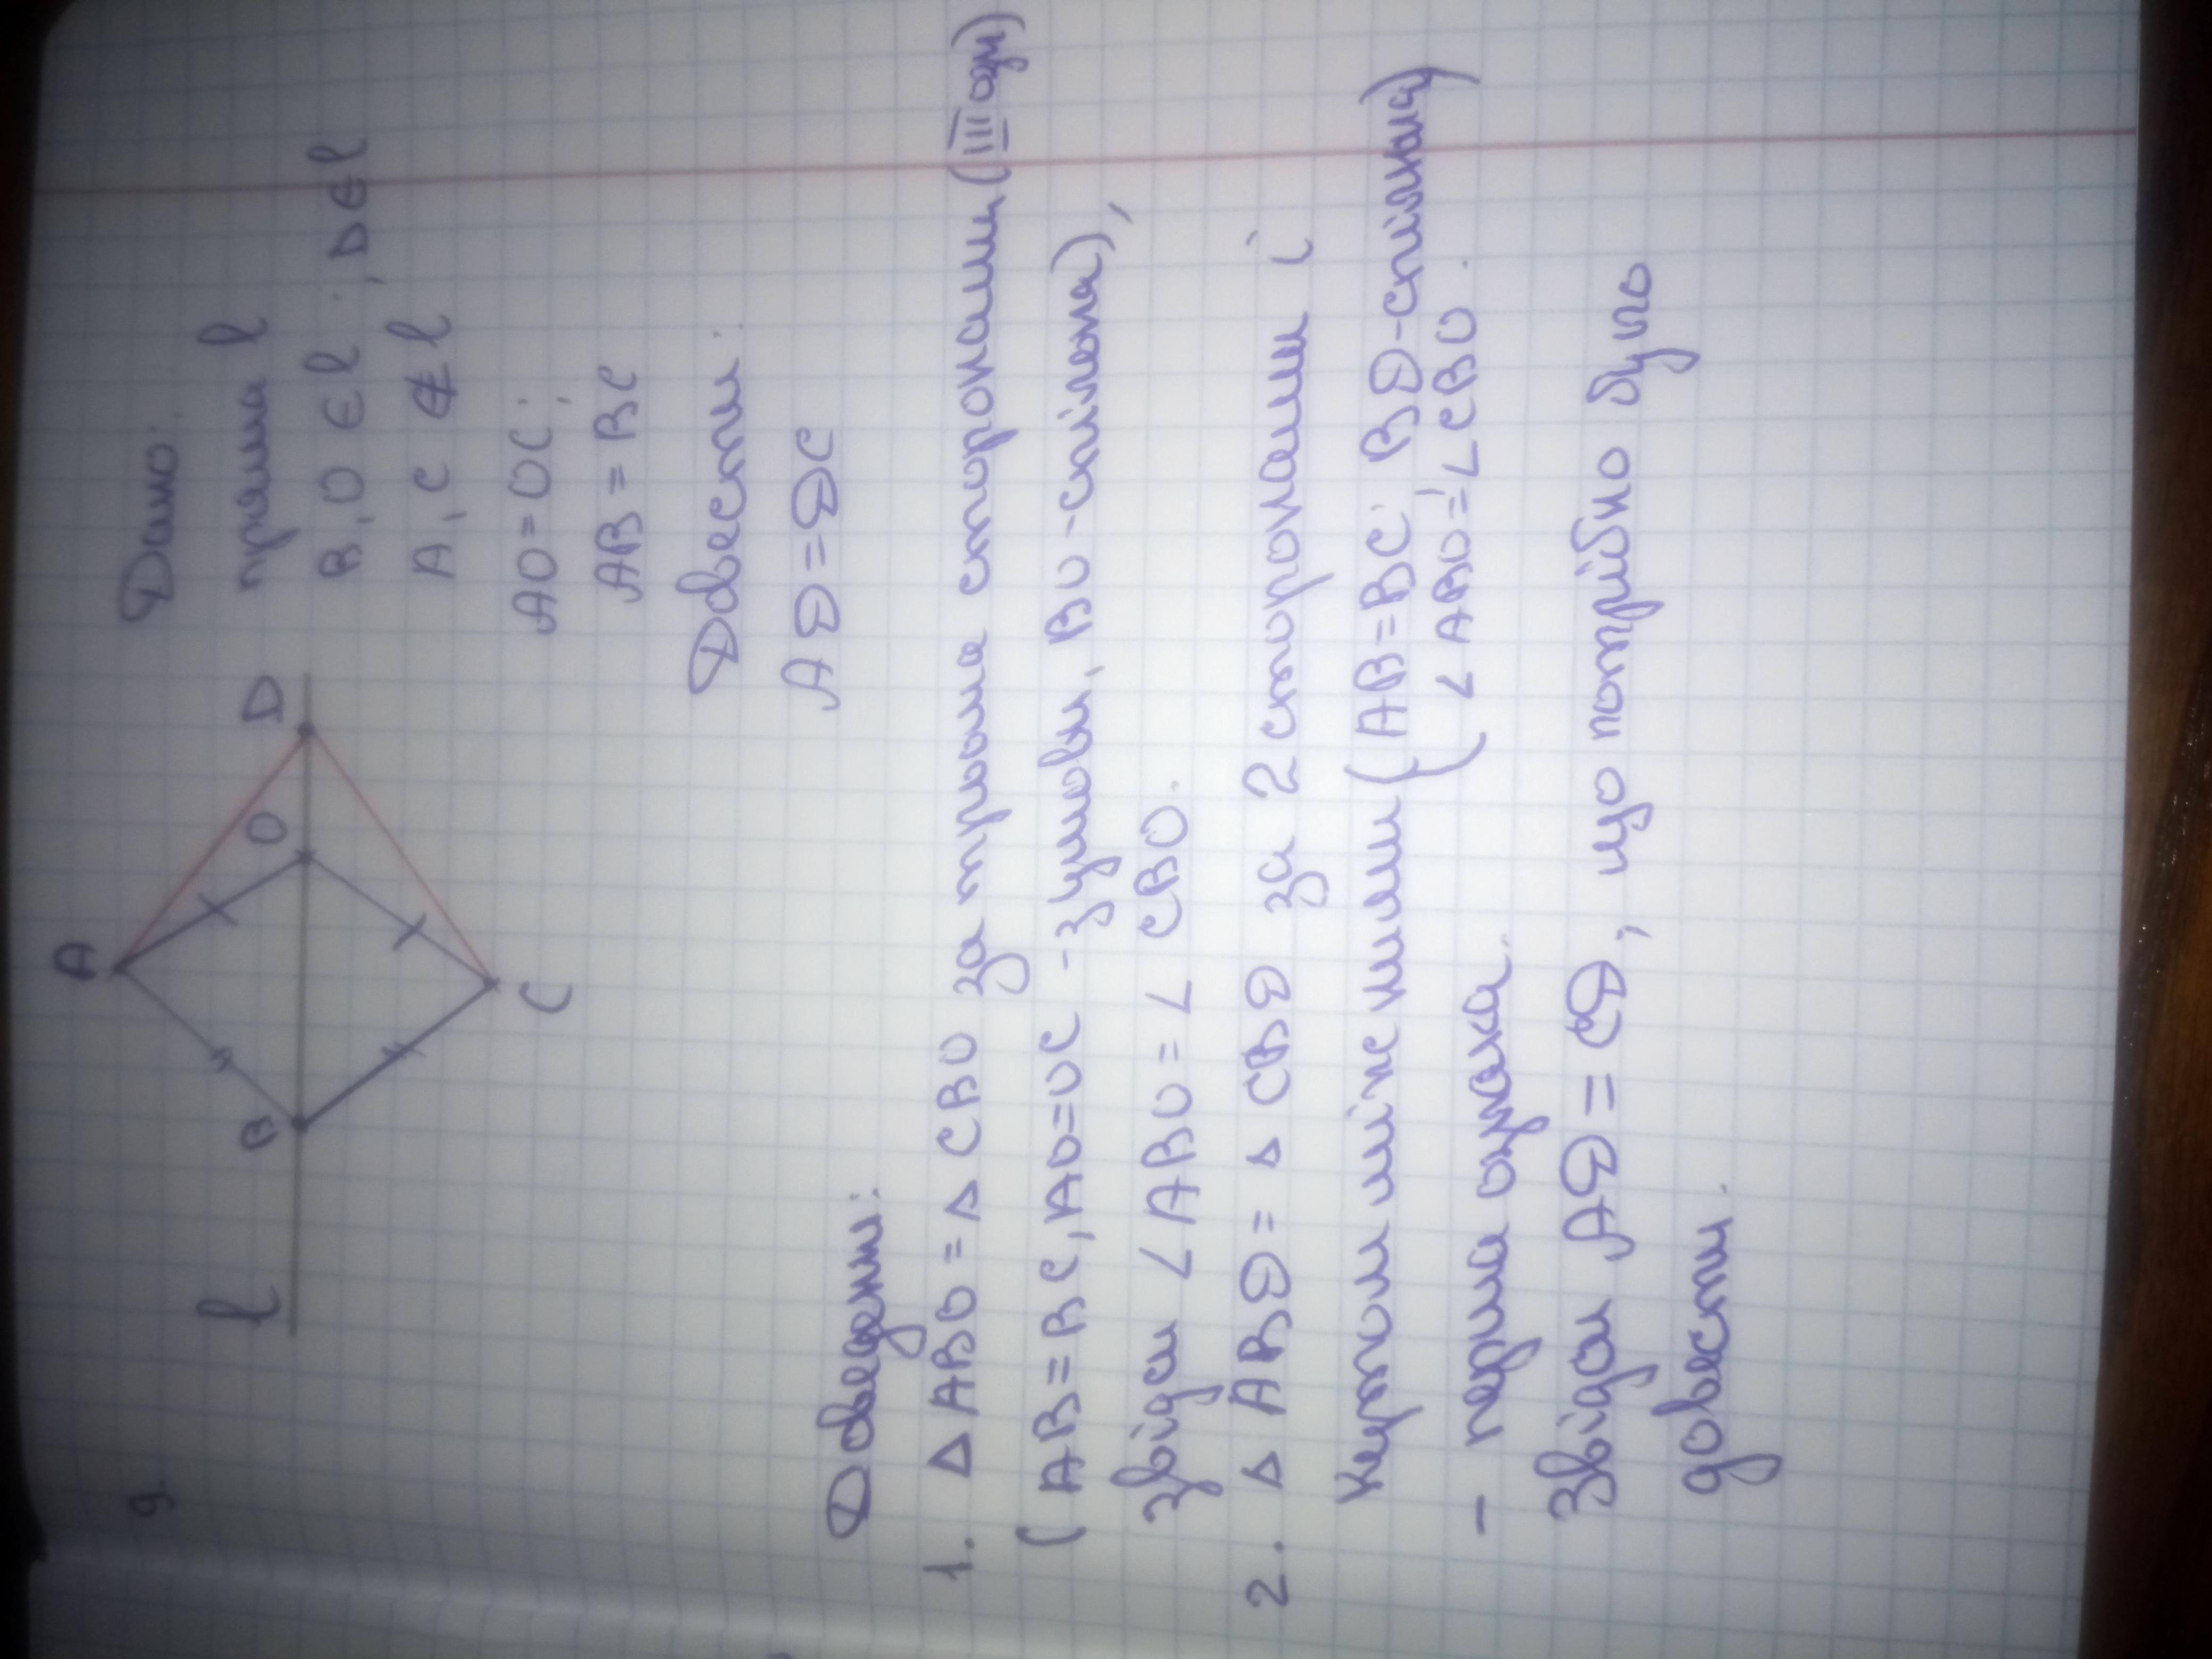 9.
A
B
O
D
C
l
Дано:
пряма l
B, O ∈ l ; D ∈ l
A, C ∉ l
AO = OC;
AB = BC
Довести:
AD = DC
Доведення:
1. △ ABO = △ CBO за трьома сторонами (III озн)
(AB = BC, AO = OC - з умови, BO - спільна),
звідси ∠ ABO = ∠ CBO.
2. △ ABD = △ CBD за 2 сторонами і
кутом між ними (AB = BC; BD - спільна)
( ∠ ABO = ∠ CBO.
- перша ознака.
Звідси AD = CD, що потрібно було
довести.